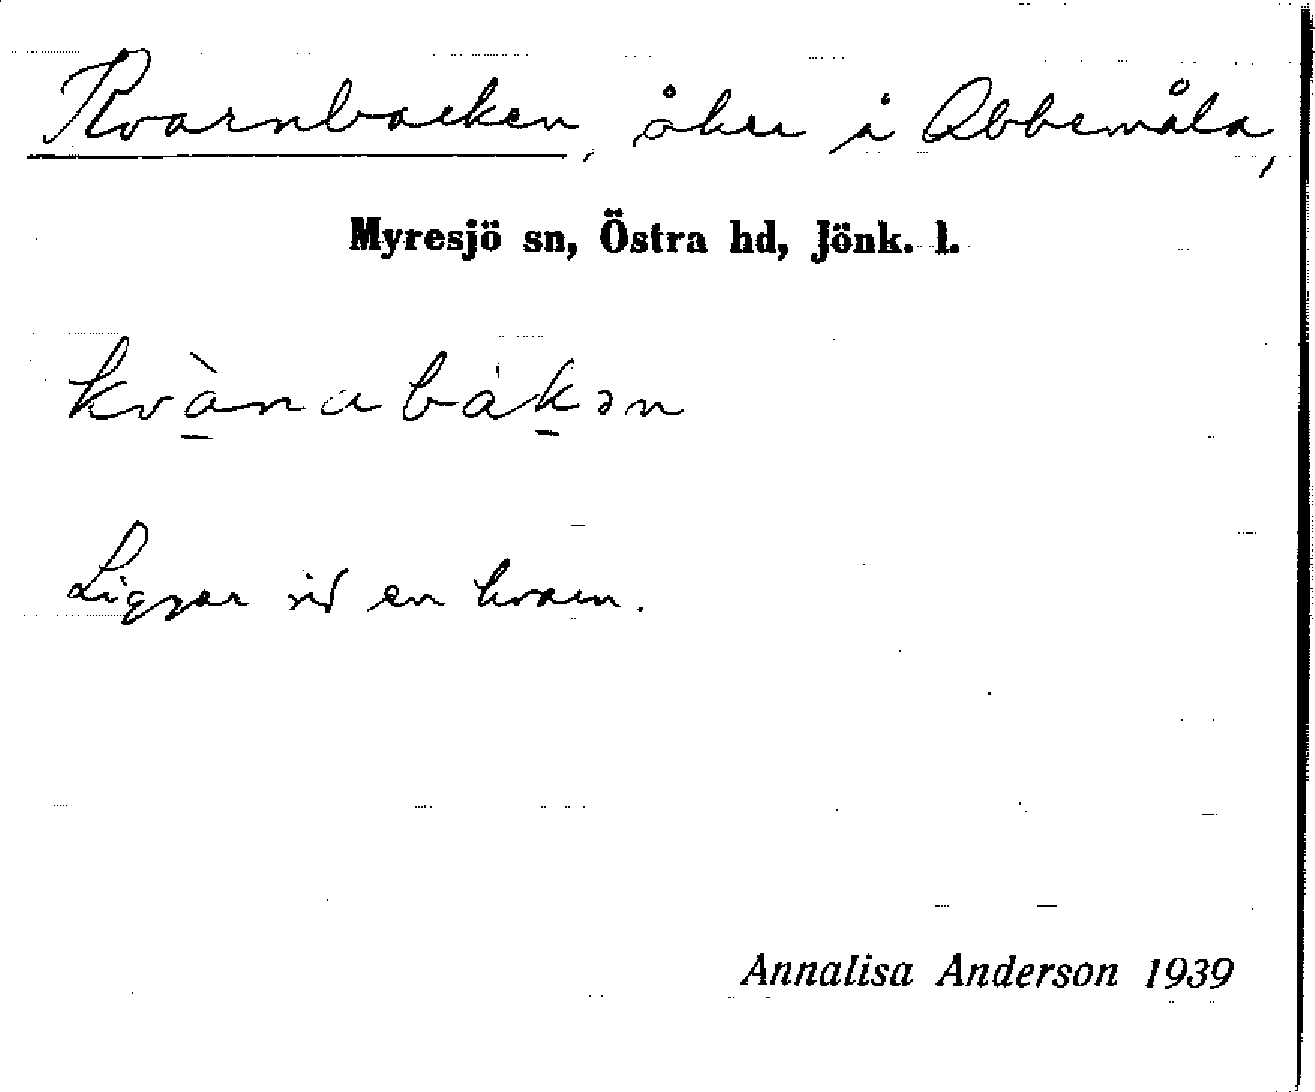 Kvarnbacken, åker å Abbemåla,
Myresjö sn, Östra hd, Jönk. l.
kvànabákən
Ligger vid en kvarn.
Annalisa Anderson 1939